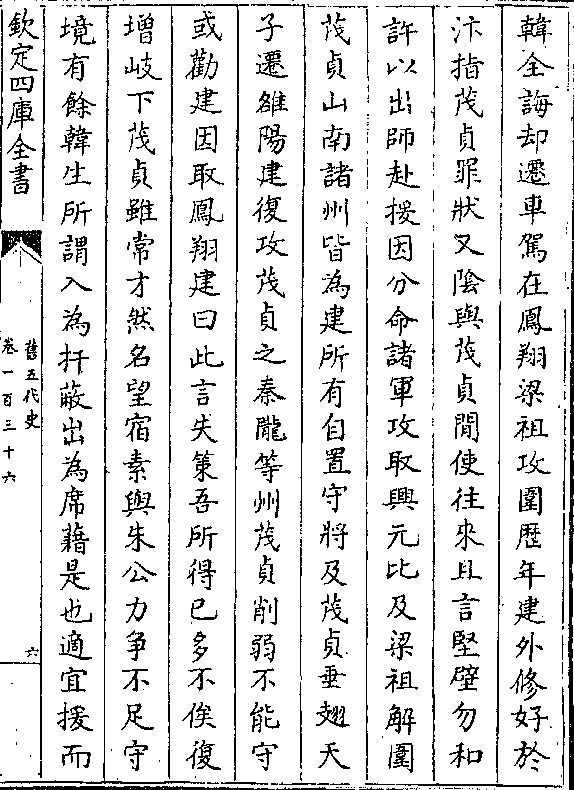 韓全誨却遷車駕在鳳翔梁祖攻圍歴年建外修好於
汴指茂貞罪狀又隂與茂貞間使往來且言堅壁勿和
許以出師赴援因分命諸軍攻取興元比及梁祖解圍
茂貞山南諸州皆為建所有自置守將及茂貞垂翅天
子遷雒陽建復攻茂貞之秦隴等州茂貞削弱不能守
或勸建因取鳳翔建曰此言失策吾所得已多不俟復
增岐下茂貞雖常才然名望宿素與朱公力争不足守
境有餘韓生所謂入為扞蔽出為席藉是也適宜援而
欽定四庫全書
舊五代史
卷一百三十六
六